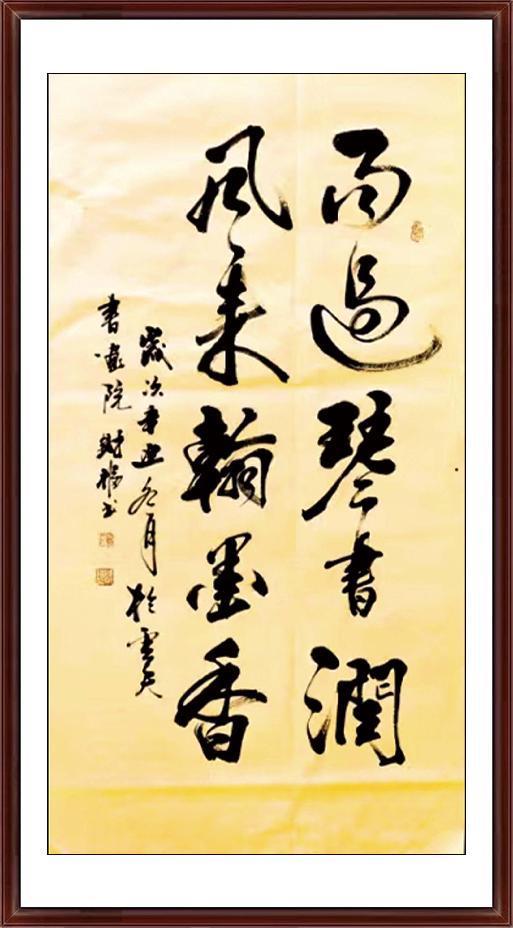 雨過琴書潤
風来翰墨香
歲次辛丑冬月於雲天
書畫院財楊書